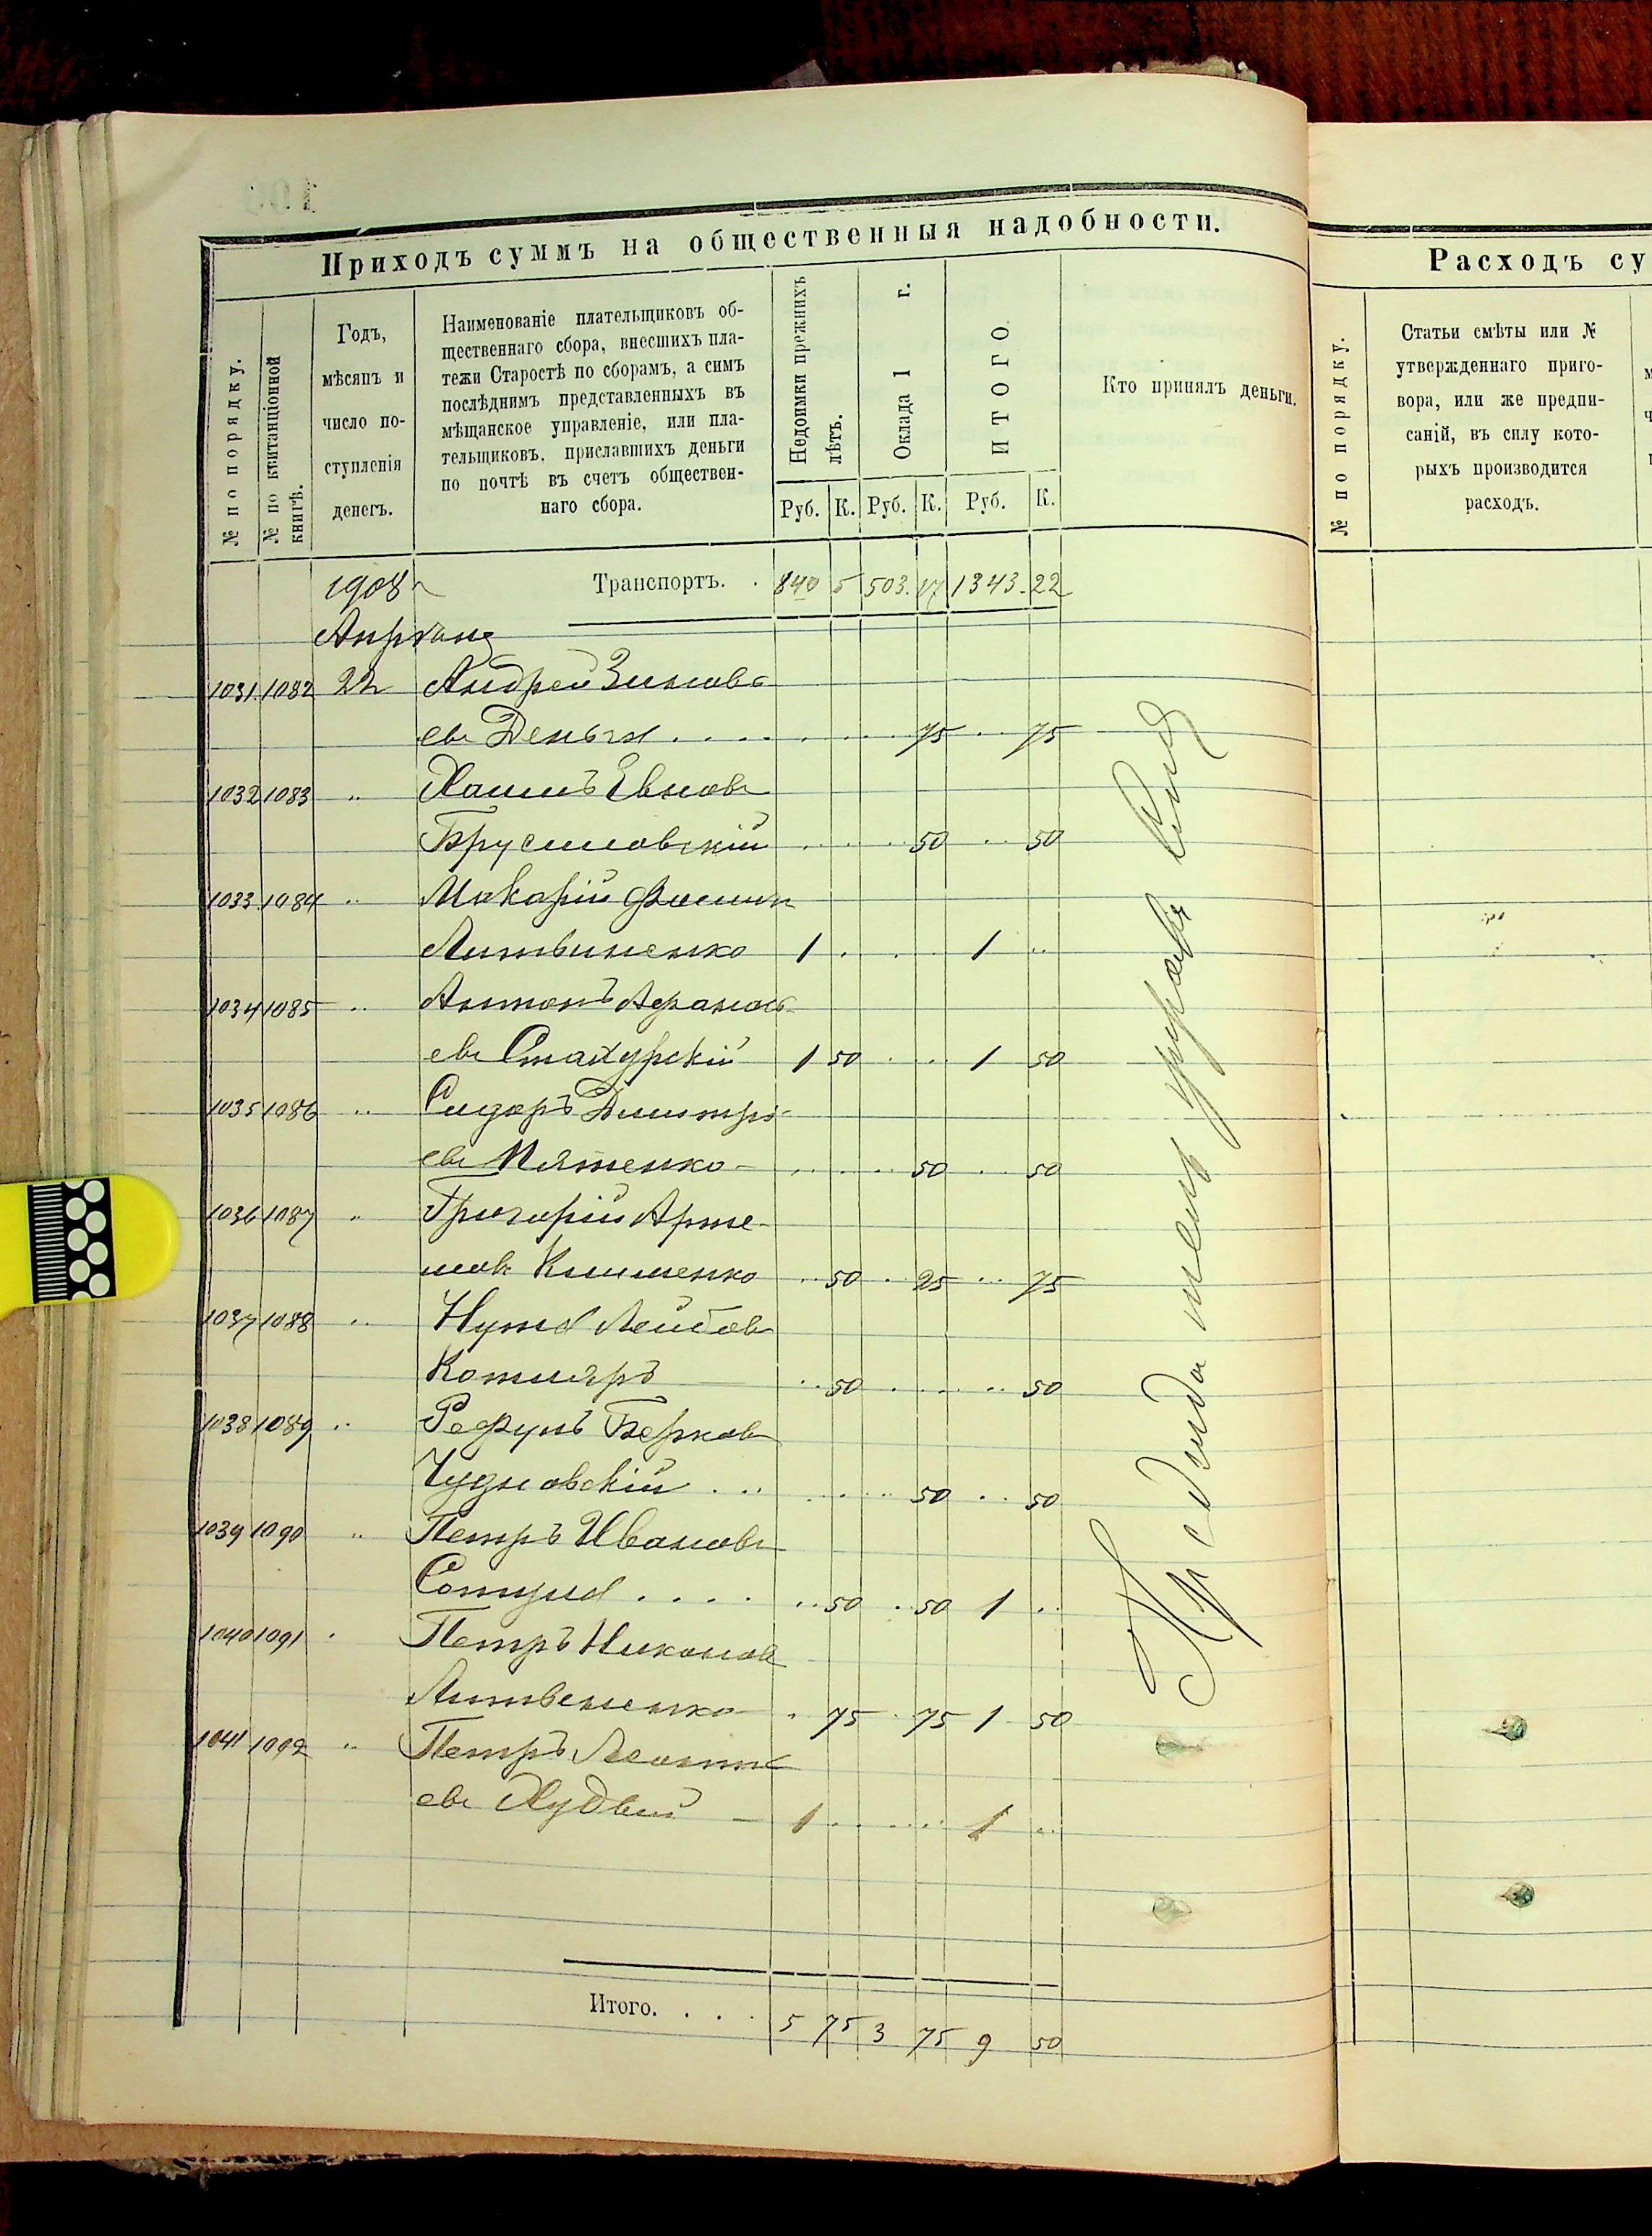 Приходъ суммъ на общественныя надобности.
№ по порядку.
№ по квитанціонной книгѣ.
Годъ,
мѣсяцъ и
число по-
ступленія
денегъ.
Наименованіе плательщиковъ об-
щественнаго сбора, внесшихъ пла-
тежи Старостѣ по сборамъ, а симъ
послѣднимъ представленныхъ въ
мѣщанское управленіе, или пла-
тельщиковъ, приславшихъ деньги
по почтѣ въ счетъ обществен-
наго сбора.
Недоимки прежнихъ лѣтъ.
Оклада 1 г.
ИТОГО.
Кто принялъ деньги.
Руб. К. Руб. К. Руб. К.
1908 г Транспортъ. . 840 5 503. 17 1343. 22
Апрѣль
1031. 1082 22 Андрей Зиновь
евъ Деньга . . . . 75 75
1032 1083 " Хаимъ Евновъ
Брусиловскій 50 50
1033 1084 " Макарій Фоминъ
Литвиненко 1 1
1034 1085 " Антонъ Афанась
евъ Стахурскій 1 50 1 50
1035 1086 " Сидоръ Дмитрі-
евъ 50 50
1036 1087 " Григорій Арте-
мовъ Клименко 50 25 75
1037 1088 " Нута Лейбовъ
Котляръ 50 50
1038 1089 " Берковъ
Чудновскій . . . 50 50
1039 1090 " Петръ Ивановъ
. . . . 50 50 1
1040 1091 " Петръ Никоновъ
Литвененко 75 75 1 50
1041 1092 " Петръ Леонть
евъ 1 1
Предсѣдатель управы
Итого. . . . 5 75 3 75 9 50
Расходъ су
№ по порядку.
Статьи смѣты или №
утвержденнаго приго-
вора, или же предпи-
саній, въ силу кото-
рыхъ производится
расходъ.